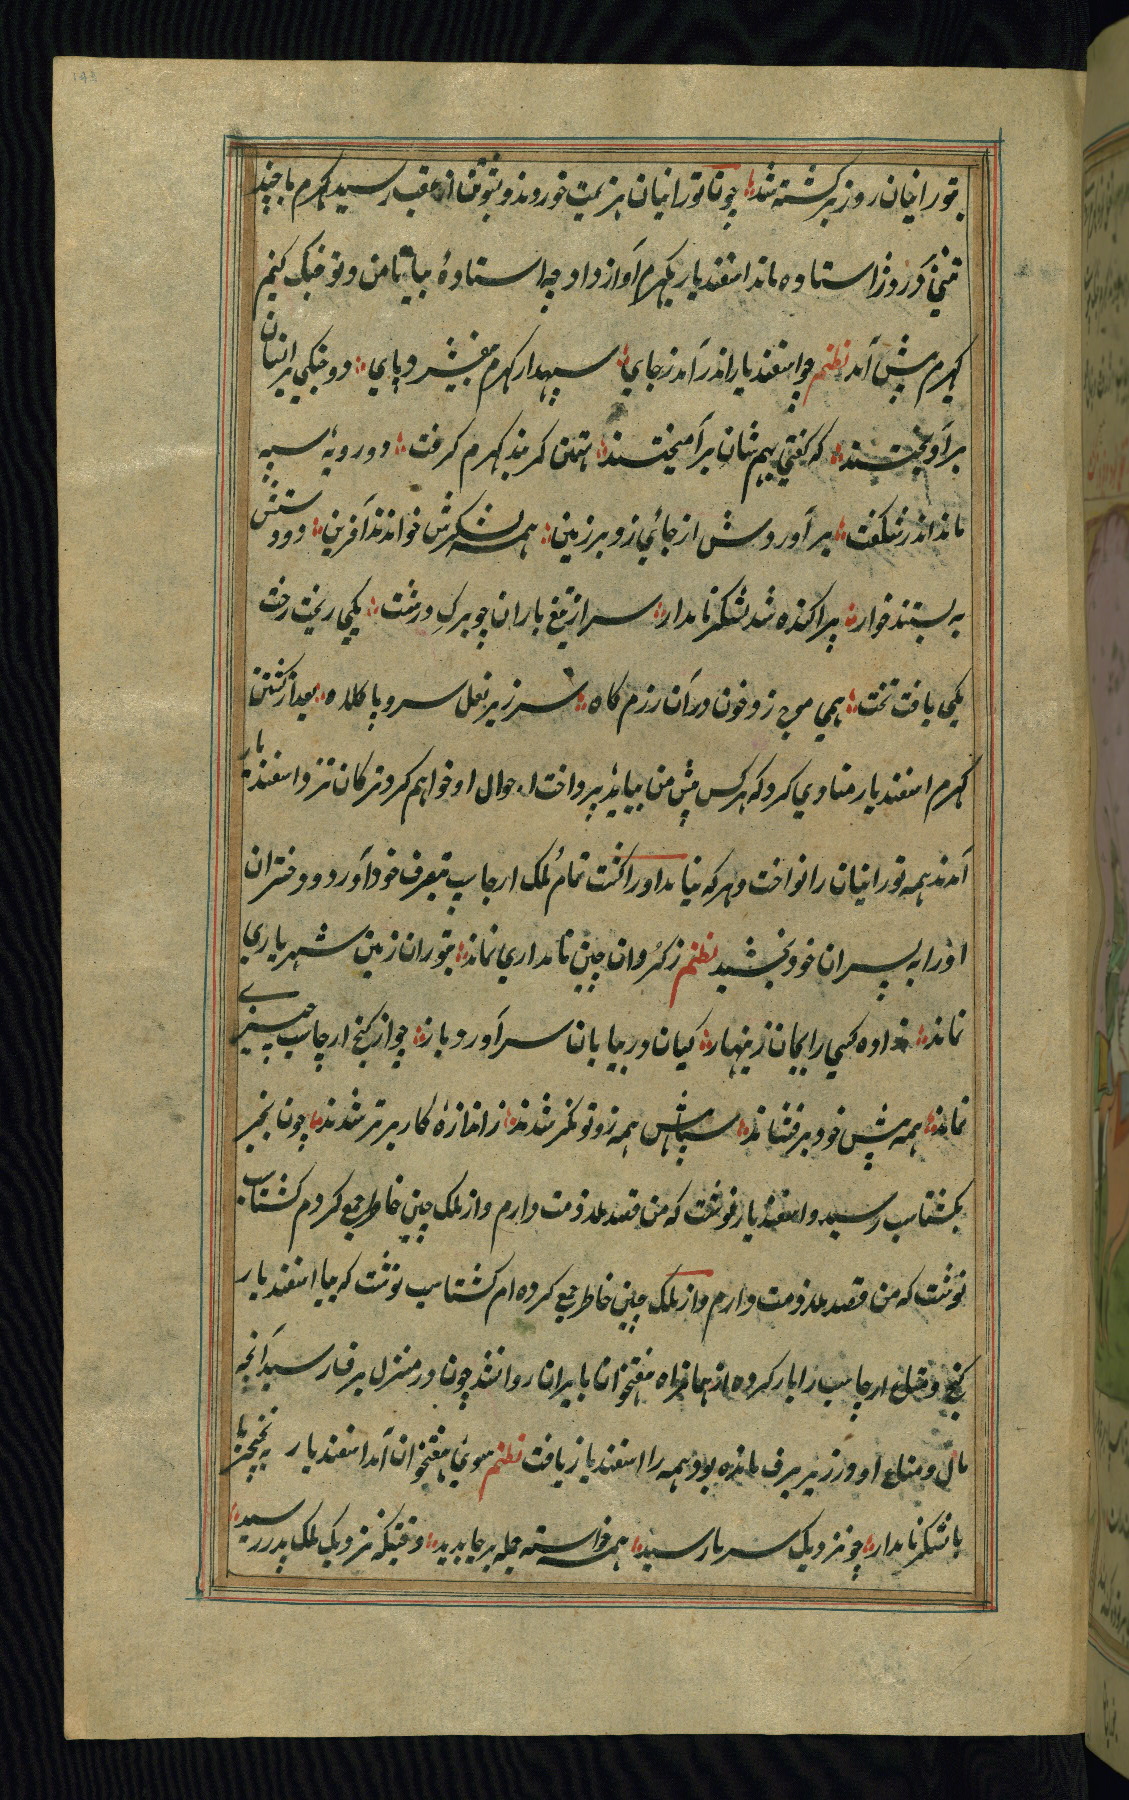 بتورانیان روز برگشته شد چون تورانیان هزیمت خوردند و پشوتن از عقب رسید کهرم با چند
تنی آنروز استاده ماند اسفندیار بکهرم آواز داد چه استادهٔ بیا تا من و تو جنگ کنیم
کهرم پیش آمد نظم چو اسفندیار اندر آمد ز جای سپهدار کهرم بیفشرد پای دو جنگی بر انسان
بر آویختند که گفتی بهم شان بر آمیختند تهمتن کمربند کهرم گرفت دو رویه سپه
ماند اندر شگفت بر آوردش از جای زد بر زمین همه لشکرش خواندند آفرین دو دستش
به بستند خوار پراکنده شد لشکر نامدار سر از تیغ باران چو برگ درخت یکی ریخت رخت
یکی یافت تخت همی موج زد خون در آن رزم گاه سر زیر نعل سر و با کلاه بعد از کشتن
کهرم اسفندیار منادی کرد که هر کس پیش من بیاید پرداخت احوال او خواهم کرد ترکان نزد اسفندیار
آمدند همه تورانیان را نواخت و هر که نیامد او را کشت تمام ملک ارجاسپ بتصرف خود آورد و دختران
او را به پسران خود بخشید نظم ز گردان چین نامداری نماند بتوران زمین شهریاری
نماند نداده کسی را بجان زینهار کیان در بیابان سر آورد باز چو از گنج ارجاسپ چیزی
نماند همه پیش خود برفشاند سپاهش همه زو توانگر شدند ز اندازهٔ کار برتر شدند چون خبر
بگشتاسپ رسید و اسفندیار نوشت که من قصد ملازمت دارم و از ملک چین خاطر جمع کردم گشتاسپ
نوشت که من قصد ملازمت دارم و از ملک چین خاطر جمع کرده ام گشتاسپ نوشت که بیا اسفندیار
گنج و متاع ارجاسپ را بار کرده از همان راه هفتخوان بایران روانشد چون در منزل برف رسید آنچه
مال و متاع او در زیر برف مانده بود همه را اسفندیار یافت نظم سوی هفتخوان آمد اسفندیار به نخچیر با
با لشکر نامدار چو نزدیک سرما رسید همه خواسته جمله بر جا بدید وقتیکه نزدیک ملک پدر رسید